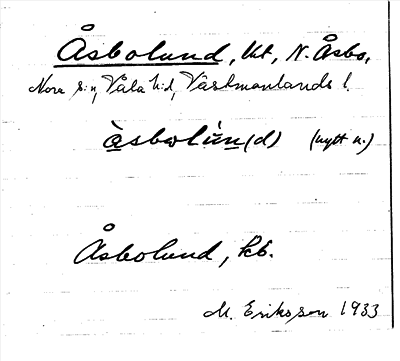 Åsbolund, lht, N. Åsbo,
Nora s:n, Våla h:d, Västmanlands l.
å̀sbωlún(d) (nytt n.)
Åsbolund, kb.
M. Eriksson 1933